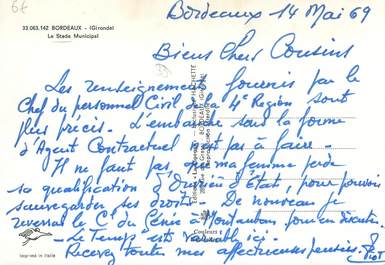 6€
33 063.142 BORDEAUX - (Gironde)
Le Stade Municipal
Bordeaux 14 Mai 69
Biens Chers Cousins
Les renseignements fournis par le
Chef du personnel Civil de la 4e Région sont
plus précis. L'embauche sous la forme
d'Agent Contractuel n'est pas à faire.
Il ne faut pas que ma femme perde
sa qualification d'Ouvrier d'Etat, pour pouvoir
sauvegarder ses droits. De nouveau je
verrai le Ct du Génie à Montauban pour en discuter.
Le Temps est ici.
Recevez toutes mes affectueuses pensées.
Couleurs
Imprimé in Italie